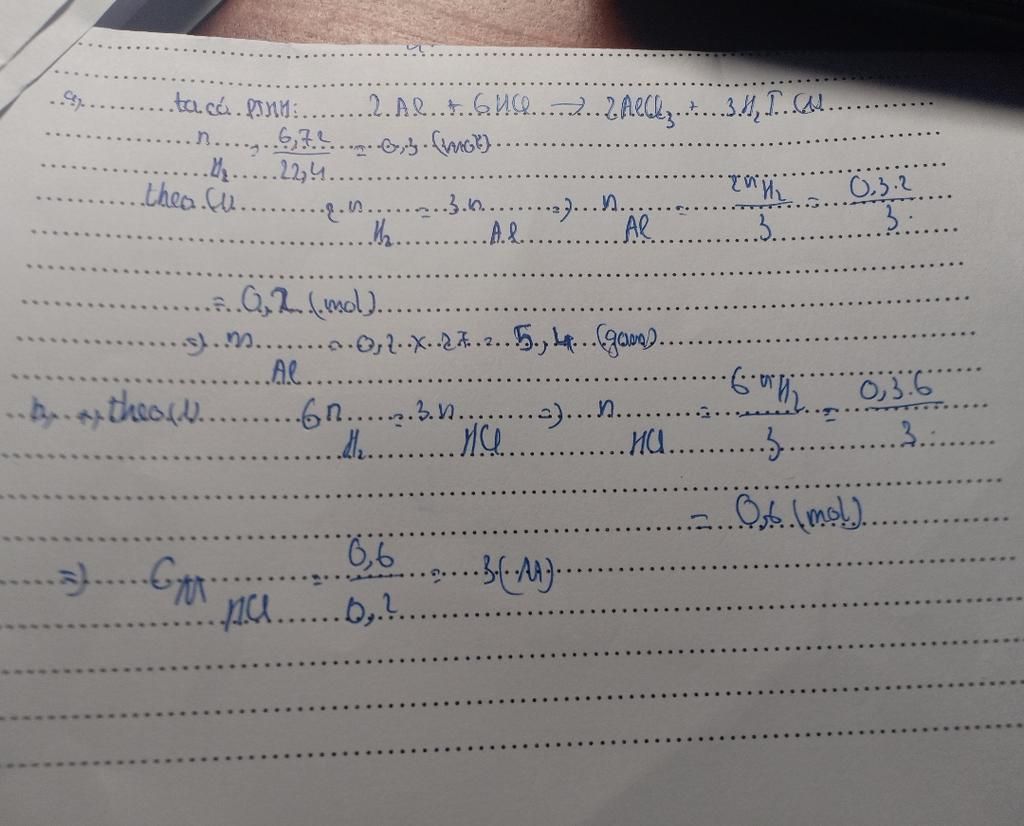 a, ta có PTHH: 2Al + 6HCl → 2AlCl₃ + 3H₂↑ (1)
n H₂ = 6,72 / 22,4 = 0,3 (mol)
theo (1) 2.n H₂ = 3.n Al => n Al = 2n H₂ / 3 = 0,3.2 / 3
= 0,2 (mol)
=> m Al = 0,2 x 27 = 5,4 (gam)
b, theo (1) 6n H₂ = 3.n HCl => n HCl = 6n H₂ / 3 = 0,3.6 / 3
= 0,6 (mol)
=> CM HCl = 0,6 / 0,2 = 3 (M)